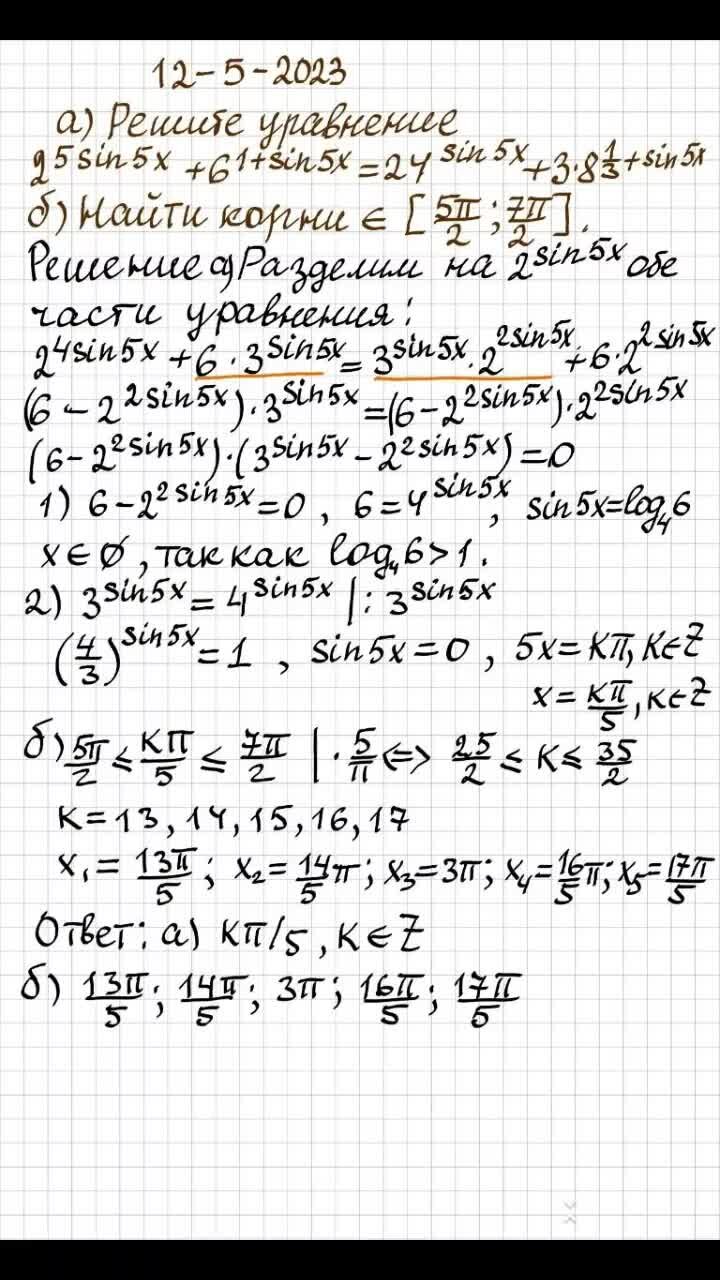 12-5-2023
а) Решите уравнение
2^(5sin5x) + 6^(1+sin5x) = 24^(sin5x) + 3·8^(1/3+sin5x)
б) Найти корни ∈ [5π/2; 7π/2].
Решение а) Разделим на 2^(sin5x) обе
части уравнения:
2^(4sin5x) + 6·3^(sin5x) = 3^(sin5x)·2^(2sin5x) + 6·2^(2sin5x)
(6-2^(2sin5x))·3^(sin5x) = (6-2^(2sin5x))·2^(2sin5x)
(6-2^(2sin5x))·(3^(sin5x) - 2^(2sin5x)) = 0
1) 6-2^(2sin5x) = 0, 6 = 4^(sin5x), sin5x = log₄6
x ∈ ∅, так как log₄6 > 1.
2) 3^(sin5x) = 4^(sin5x) |: 3^(sin5x)
(4/3)^(sin5x) = 1, sin5x = 0, 5x = Kπ, K∈Z
x = Kπ/5, K∈Z
б) 5π/2 ≤ Kπ/5 ≤ 7π/2 |·5/π ⇔ 25/2 ≤ K ≤ 35/2
K = 13, 14, 15, 16, 17
x₁ = 13π/5; x₂ = 14/5 π; x₃ = 3π; x₄ = 16/5 π; x₅ = 17π/5
Ответ: а) Kπ/5, K∈Z
б) 13π/5; 14π/5; 3π; 16π/5; 17π/5